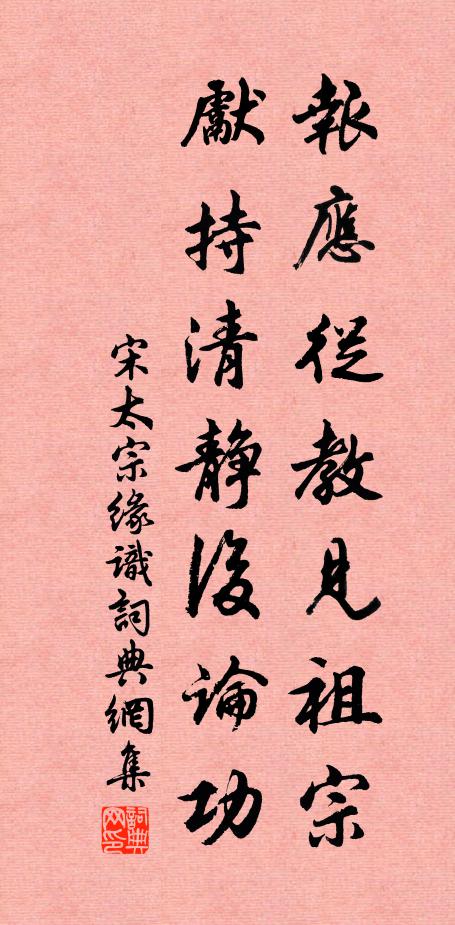 報應從教見祖宗
獻持清靜後論功
宋太宗緣識詞典網集
詞典网印